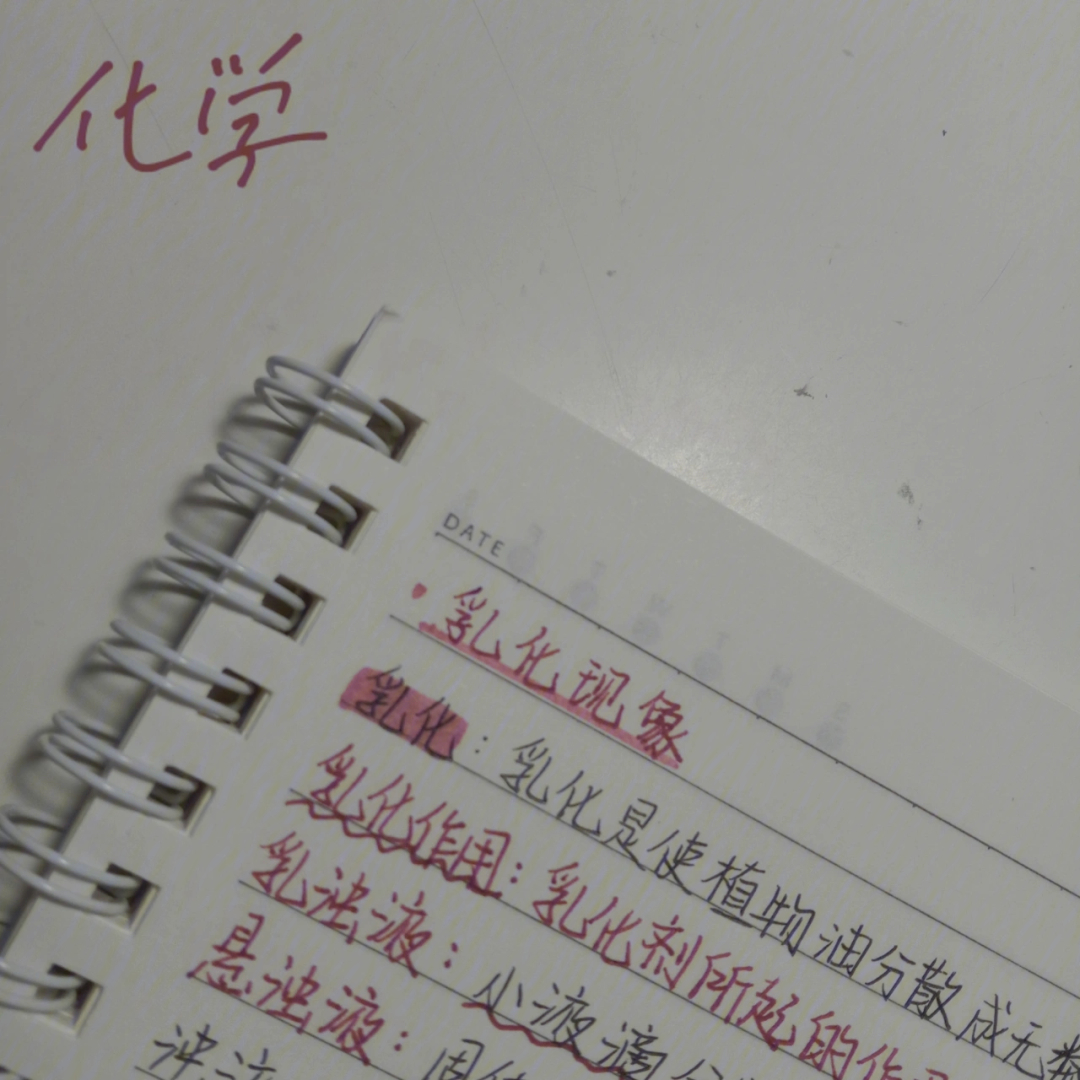 化学
DATE
乳化现象
乳化：乳化是使植物油分散成无数
乳化作用：乳化剂所起的作用
乳浊液：小液滴分
悬浊液：固体
浊液